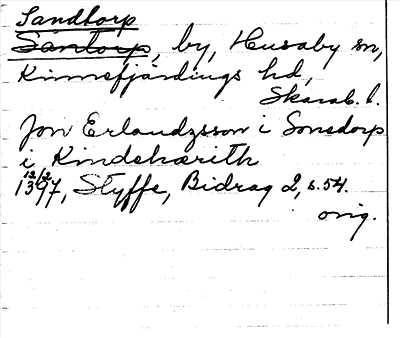 Sandtorp
Santorp, by, Husaby sn,
Kinnefjärdings hd,
Skarab. l.
Jon Erlandzsson i Sonsdorp
i Kindehærith
12/2
1397, Styffe, Bidrag 2, s. 54.
orig.